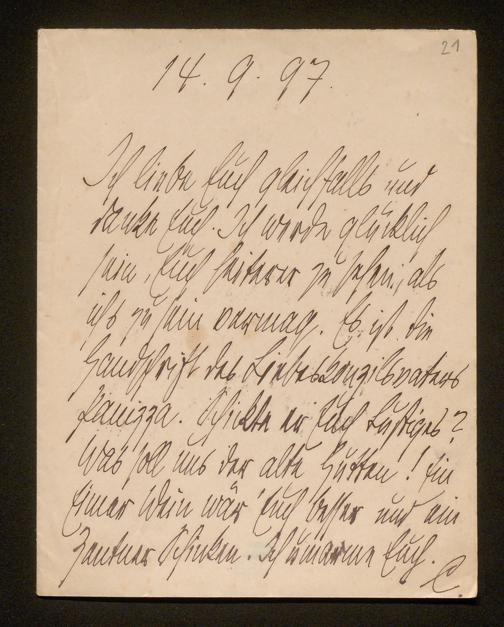 21
14. 9. 97.
Ich liebe Euch gleichfalls und
danke Euch. Ich werde glücklich
sein, Euch heiterer zu sehen, als
ich's zu sein vermag. Es ist die
Handschrift des Liebeskonzilsvaters
Panizza. Schickte er Euch Lustiges?
Was soll uns der alte Hutten! Ein
Eimer Wein wär' Euch besser und ein
Zentner Schinken. Ich umarme Euch.
C.